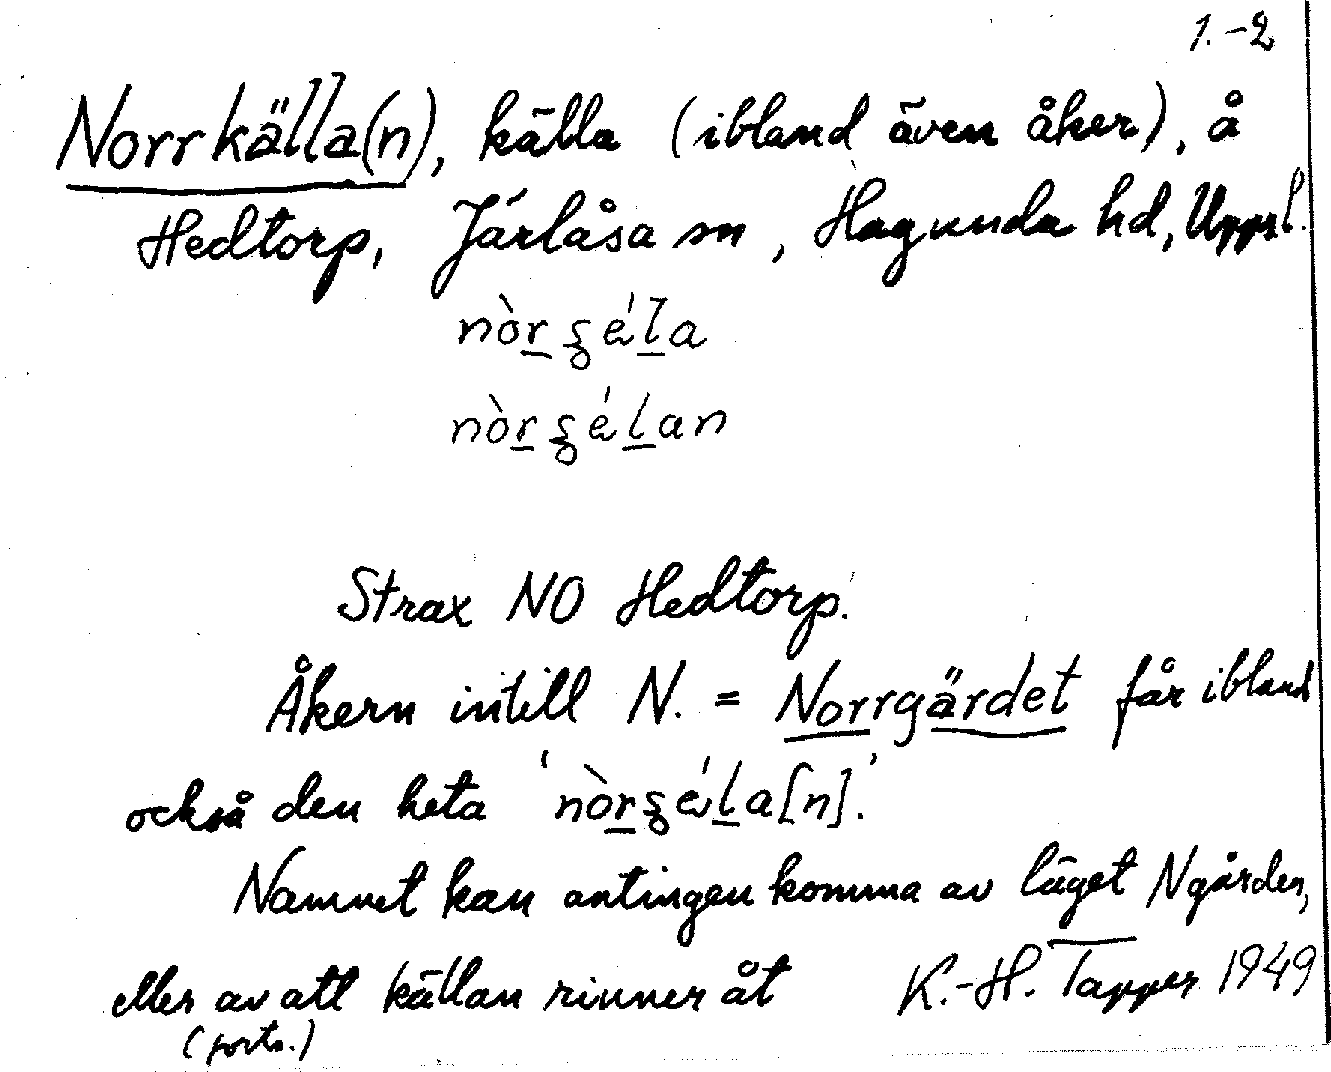 1.-2
Norrkälla(n), källa (ibland även åker), å
Hedtorp, Järlåsa sn, Hagunda hd, Uppsl.
Strax NO Hedtorp.
Åkern intill N. = Norrgärdet får ibland
också den heta
Namnet kan antingen komma av läget N gården,
eller av att källan rinner åt
K.-H. Tapper 1949
(forts.)